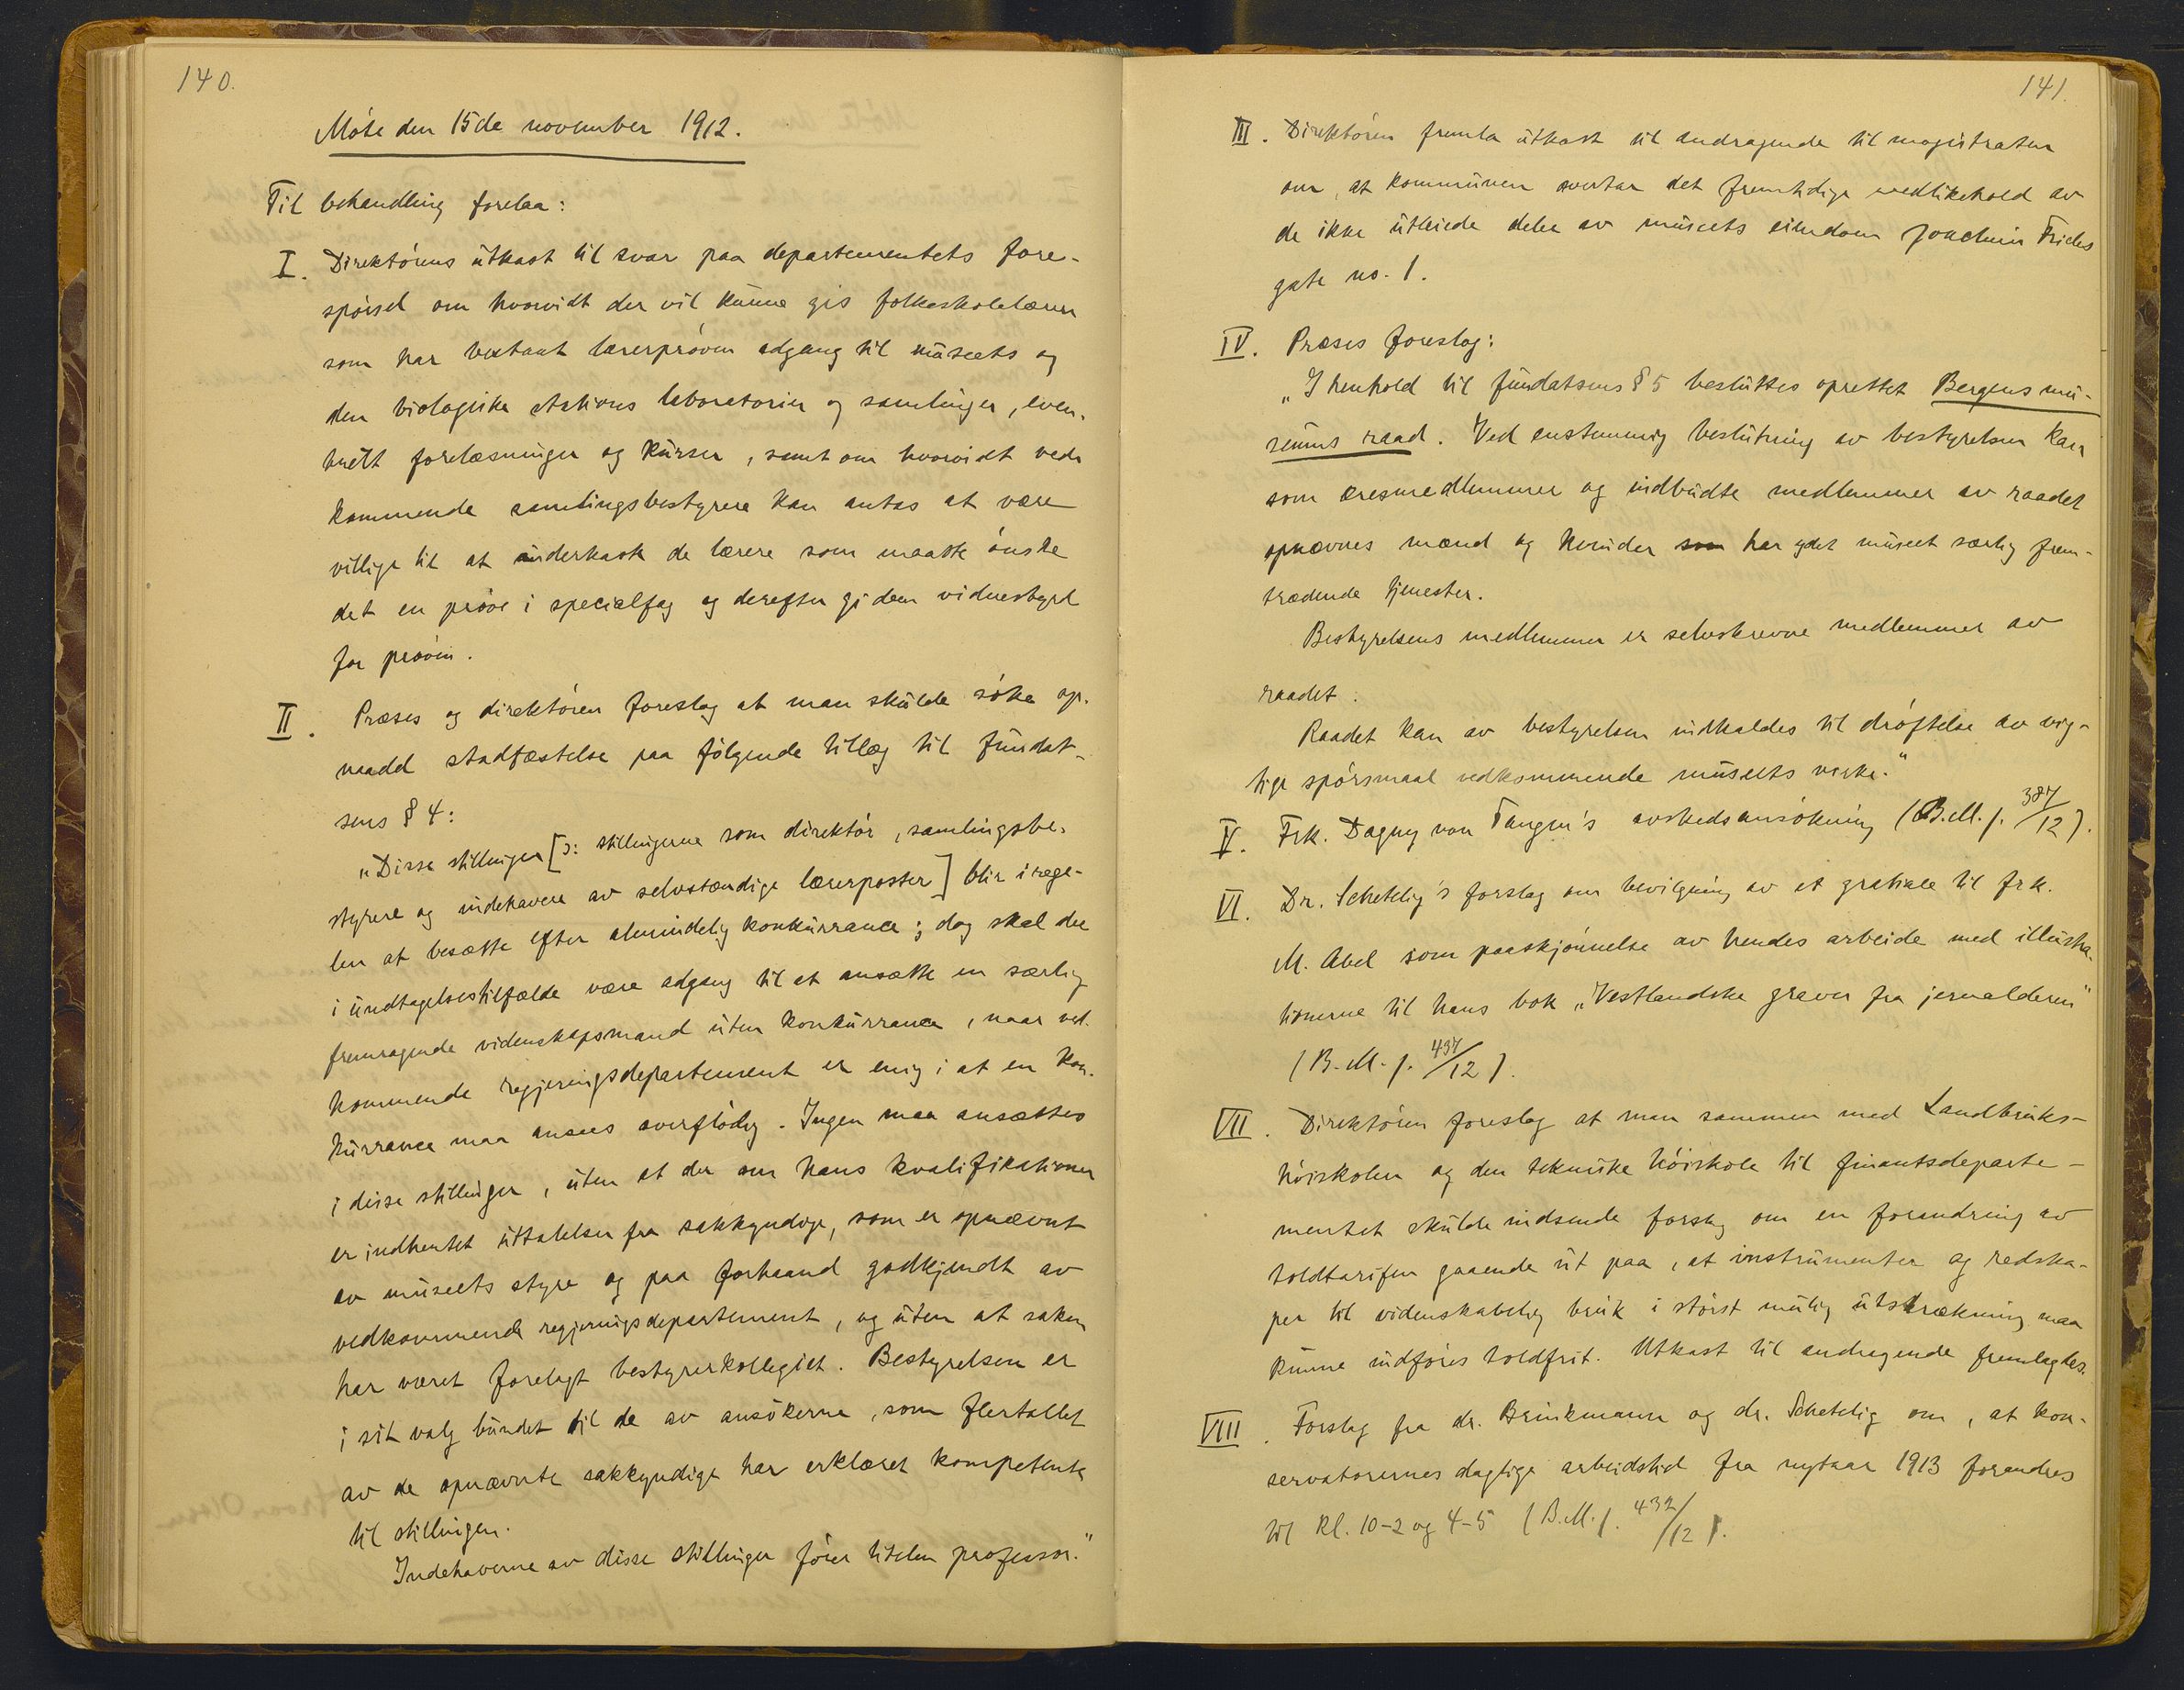 140.
Møte den 15de november 1912.
Til behandling forelaa:
I. Direktørens utkast til svar paa departementets fore-
spørsel om hvorvidt der vil kunne gis folkeskolelærere
som har bestaat lærerprøven adgang til museets og
den biologiske stations laboratorier og samlinger, even-
tuelt forelæsninger og kurser, samt om hvorvidt ved-
kommende samlingsbestyrere kan antas at være
villige til at underkaste de lærere som maatte ønske
det en prøve i specialfag og derefter gi dem vidnesbyrd
for prøven.
II. Præses og direktøren foreslog at man skulde søke op-
naadd stadfæstelse paa følgende tillæg til fundat-
sens § 4:
„Disse stillinger [ɔ: stillingerne som direktør, samlingsbe-
styrere og indehavere av selvstændige lærerposter] blir i rege-
len at besætte efter almindelig konkurrance; dog skal der
i undtagelsestilfælde være adgang til at ansætte en særlig
fremragende videnskapsmand uten konkurrance, naar ved-
kommende regjeringsdepartement er enig i at en kon-
kurrance maa ansees overflødig. Ingen maa ansættes
i disse stillinger, uten at der om hans kvalifikationer
er indhentet uttalelser fra sakkyndige, som er opnævnt
av museets styre og paa forhaand godkjendt av
vedkommende regjeringsdepartement, og uten at saken
har været forelagt bestyrerkollegiet. Bestyrelsen er
i sit valg bundet til de av ansøkerne, som flertallet
av de opnævnte sakkyndige har erklæret kompetente
til stillingen.
Indehaverne av disse stillinger fører titelen professor."
141.
III. Direktøren fremla utkast til andragende til magistraten
om, at kommunen overtar det fremtidige vedlikehold av
de ikke utleiede deler av museets eiendom Joachim Frieles
gate no. 1.
IV. Præses foreslog:
„I henhold til fundatsens § 5 besluttes oprettet Bergens mu-
seums raad. Ved enstemmig beslutning av bestyrelsen kan
som æresmedlemmer og indbudte medlemmer av raadet
opnævnes mænd og kvinder som har ydet museet særlig frem-
trædende tjenester.
Bestyrelsens medlemmer er selvskrevne medlemmer av
raadet.
Raadet kan av bestyrelsen indkaldes til drøftelse av vig-
tige spørsmaal vedkommende museets virke."
V. Frk. Dagny von Tangen's avskedsansøkning (B.M.j. 387/12).
VI. Dr. Schetelig's forslag om bevilgning av et gratiale til frk.
M. Abel som paaskjønnelse av hendes arbeide med illustra-
tionerne til hans bok „Vestlandske graver fra jernalderen"
(B.M.j. 437/12).
VII. Direktøren foreslog at man sammen med Landbruks-
høiskolen og den tekniske høiskole til finantsdeparte-
mentet skulde indsende forslag om en forandring av
toldtarifen gaaende ut paa, at instrumenter og redska-
per til videnskabelig bruk i størst mulig utstrækning maa
kunne indføres toldfrit. Utkast til andragende fremlagdes.
VIII. Forslag fra dr. Brinkmann og dr. Schetelig om, at kon-
servatorernes daglige arbeidstid fra nytaar 1913 forandres
til kl. 10-2 og 4-5 (B.M.j. 432/12).